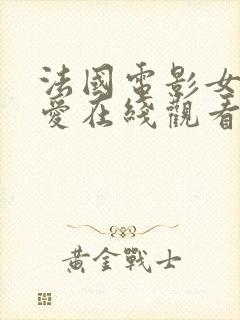 法國電影女
愛在綫觀看
黃金戰士